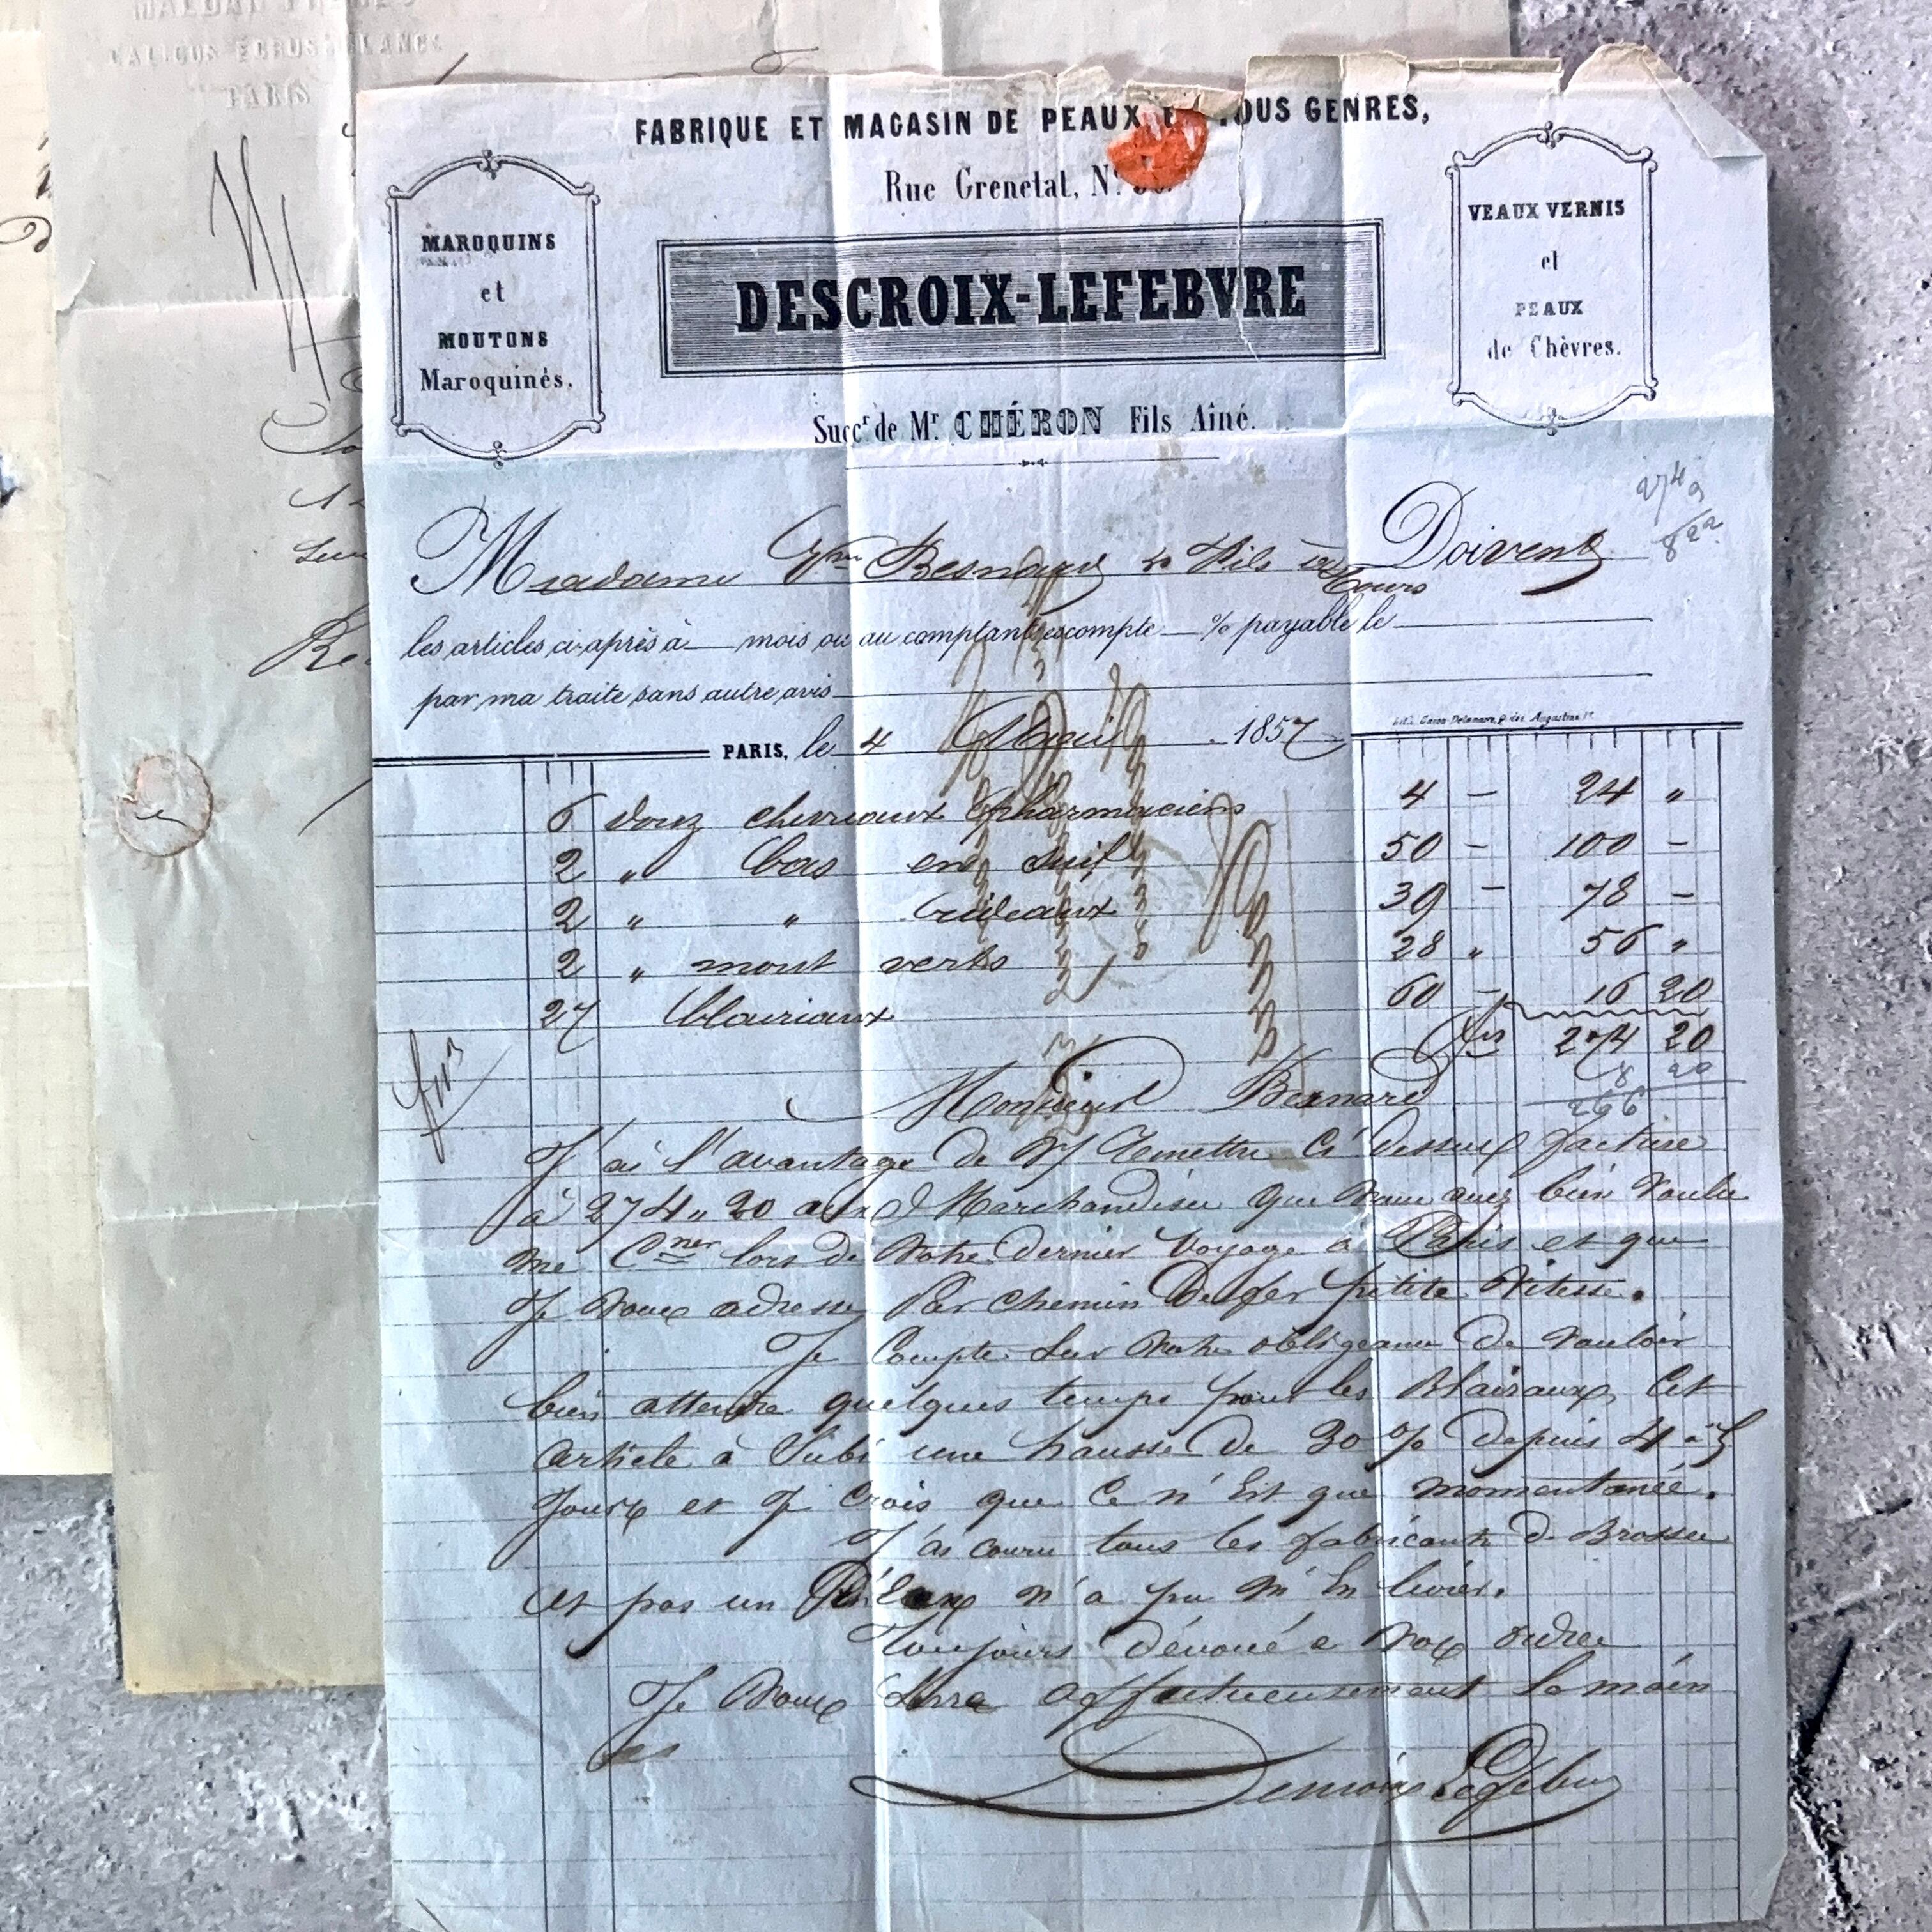 CALICOS ÉCRUS & BLANCS
PARIS
FABRIQUE ET MAGASIN DE PEAUX TOUS GENRES,
Rue Grenetat, N°
MAROQUINS
et
MOUTONS
Maroquinés.
DESCROIX-LEFEBVRE
VEAUX VERNIS
et
PEAUX
de Chèvres.
Succr de Mr. CHÉRON Fils Aîné.
274
8 22
Madame Vve Besnard & Fils à Tours Doivent
les articles ci-après à mois ou au comptant escompte % payable le
par ma traite sans autre avis
PARIS, le 4 Mai 1857
6 douz chevreaux pharmaciens 4 - 24 "
2 " bas en suif 50 - 100 -
2 " " 39 - 78 -
2 " mout verts 28 " 56 "
27 blairiaux 60 - 16 20
frs 274 20
8 20
266
Monsieur Besnard
J'ai l'avantage de Vs remettre Ci dessus facture
à 274 " 20 aux Marchandises que Vous avez bien Voulu
me Cner lors de Votre dernier Voyage à Paris et que
Je Vous adresse Par chemin De fer petite Vitesse.
Je Compte Sur Votre obligeance de Vouloir
bien attendre quelques temps pour les Blairaux, Cet
article à Subi une hausse de 30 % depuis 4 à 5
Jours et Je Crois que Ce n'Est que momentanée.
J'ai couru tous les fabricants de Brosses
et pas un n'a pu m'En livrer.
Toujours dévoué a Vos ordres
Je Vous Serre affectueusement la main
Lefebvre